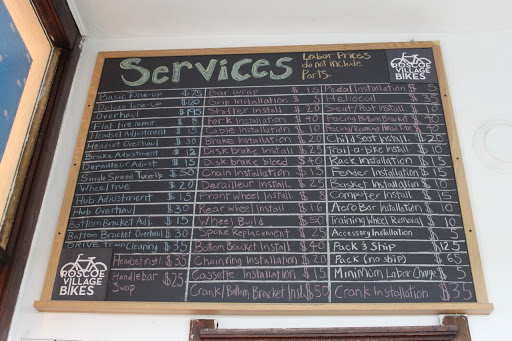 Services
Labor Prices
do not include
Parts.
ROSCOE
VILLAGE
BIKES
Basic Tune-up $75
Deluxe Tune-up $120
Overhaul $195
Flat tire repair
Headset Adjustment $15
Headset Overhaul $30
Brake Adjustment $12
Derailleur Adjust $15
Single Speed Tune Up $50
Wheel true $20
Hub Adjustment $15
Hub Overhaul $30
Bottom Bracket Adj. $15
Bottom Bracket Overhaul $30
DRIVE train Cleaping $35
Headset instl. $35
Handlebar $75
Swap
ROSCOE
VILLAGE
BIKES
Bar wrap $15
Grip Installation $5
Shifter Install $20
Fork Installation $40
Cable Installation $10
Brake Installation $20
Disk brake Install $25
Disk brake bleed $40
Chain Installation $15
Derailleur Install. $25
Front wheel Install $
Rear wheel Install $
Wheel Build $50
Spoke Replacement $25
Bottom Bracket Install $40
Chainring Installation $20
Cassette Installation $15
Crank/Bottom Bracket Instl $50
Pedal Installation $5
Heliocoil $35
Seat/Post Install $
Facing Bottom Bracket $40
Child Seat Install $20
Trail-a-bike Install $
Rack Installation $15
Fender Installation $15
Basket Installation $
Computer Install $15
Aero Bar Install $
Training Wheel Removal $
Accessory Installation $5
Pack & Ship $125
Pack (no ship) $65
Minimum Labor Charge $5
Crank Installation $35